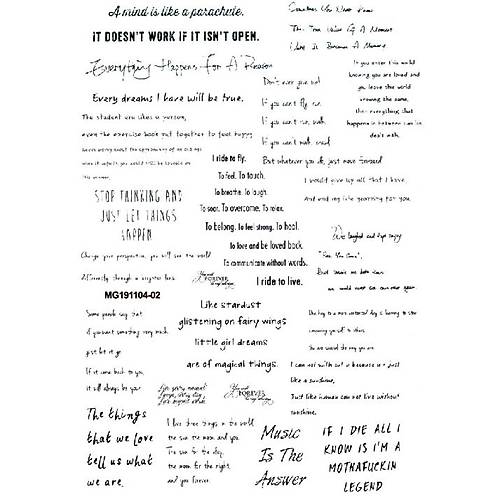 A mind is like a parachute.
IT DOESN'T WORK IF IT ISN'T OPEN.
Everything Happens For A Reason
Every dreams I have will be true.
The student are likes a person,
even the exercise book put together to feel happy
Sometimes You Never Know
The True Value Of A Moment
Until It Becomes A Memory.
Don't ever give up!
If you can't fly, run,
If you can't run, walk
If you can't walk, crawl
But whatever you do, just move forward
If you enter this world
knowing you are loved and
you leave the world
knowing the same,
then everything that
happens in between can be
dealt with.
I ride to fly.
To feel. To touch.
To breathe. To laugh.
To soar. To overcome. To relax.
To belong. To feel strong. To heal.
To love and be loved back.
To communicate without words.
I ride to live.
STOP THINKING AND
JUST LET THINGS
HAPPEN
I would give up all that I have
And end my life yearning for you.
Change your perspective, you will see the world
differently through a
We laughed and kept saying
"See You Soon",
But inside we both knew
we would never see each other again
MG191104-02
Like stardust
glistening on fairy wings
little girl dreams
are of magical things.
Some people say that
if you want something very much
just let it go
If it came back to you,
it will always be your
I can not with out u because u r just
like a sunshine,
Just like human can not live without
sunshine.
You and
FOREVER
The things
that we love
tell us what
we are.
I love three things in the world
the sun the moon and you
The sun for the day,
the moon for the night
and you forever
Music
Is The
Answer
IF I DIE ALL I
KNOW IS I'M A
MOTHAFUCKIN
LEGEND